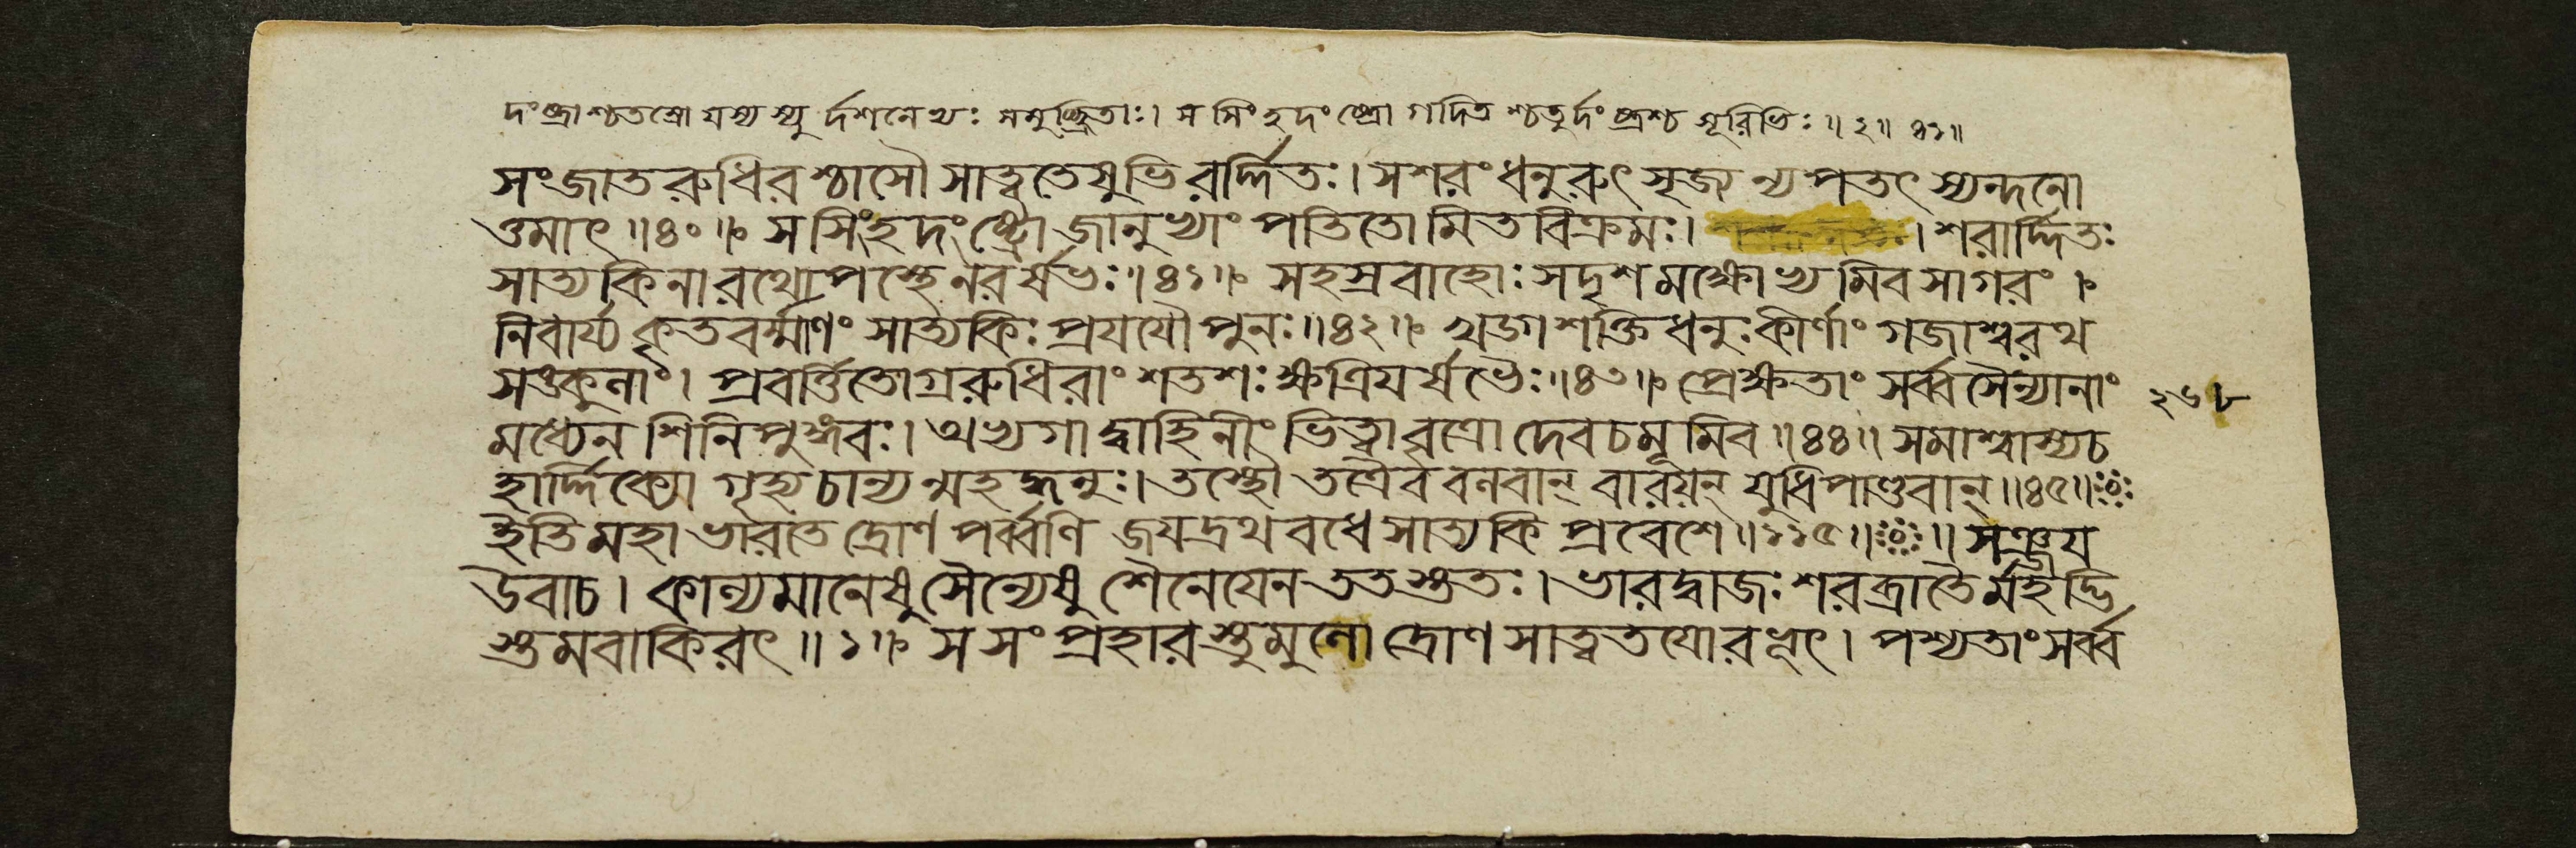 দংষ্ট্রাশ্চতস্রো যস্য স্যু র্দশনেভ্যঃ সমুচ্ছ্রিতাঃ। স সিংহদংষ্ট্রো গদিত শ্চতুর্দংষ্ট্রশ্চ সূরিভিঃ॥২॥৪১॥
সংজাতরুধিরশ্চাসৌ সাত্বতেষুভিরর্দ্দিতঃ। সশরংধনুরুৎসৃজ্য ন্যপতৎ স্যন্দনো
ত্তমাৎ॥৪০॥ স সিংহদংষ্ট্রো জানুভ্যাং পতিতো মিতবিক্রমঃ। । শরার্দ্দিতঃ
সাত্যকিনা রথোপস্থে নরর্ষভঃ॥৪১॥ সহস্রবাহোঃ সদৃশমক্ষোভ্যমিব সাগরং।
নিবার্য্য কৃতবর্ম্মাণং সাত্যকিঃ প্রযযৌ পুনঃ॥৪২॥ খড়্গশক্তিধনুঃকীর্ণাং গজাশ্বরথ
সঙ্কুলাং। প্রবর্ত্তিতোগ্ররুধিরাং শতশঃ ক্ষত্রিযর্ষভৈঃ॥৪৩॥ প্রেক্ষতাং সর্ব্বসৈন্যানাং
২৬৮
মধ্যেন শিনিপুঙ্গবঃ। অভ্যগাদ্বাহিনীং ভিত্বা বৃত্রো দেবচমূমিব॥৪৪॥ সমাশ্বাস্য চ
হার্দ্দিক্যো গৃহ্য চান্যন্মহদ্ধনুঃ। তস্থৌ তত্রৈব বলবান্ বারয়ন্ যুধি পাণ্ডবান্॥৪৫॥
ইতি মহাভারতে দ্রোণপর্ব্বণি জযদ্রথবধে সাত্যকি প্রবেশে॥১১৫॥ ॥ সঞ্জয
উবাচ। কাল্যমানেষু সৈন্যেষু শৈনেযেন ততস্ততঃ। ভারদ্বাজঃ শরব্রাতৈর্মহদ্ভি
স্তমবাকিরৎ॥১॥ স সংপ্রহারস্তুমুলো দ্রোণসাত্বতযোরভূৎ। পশ্যতাং সর্ব্ব